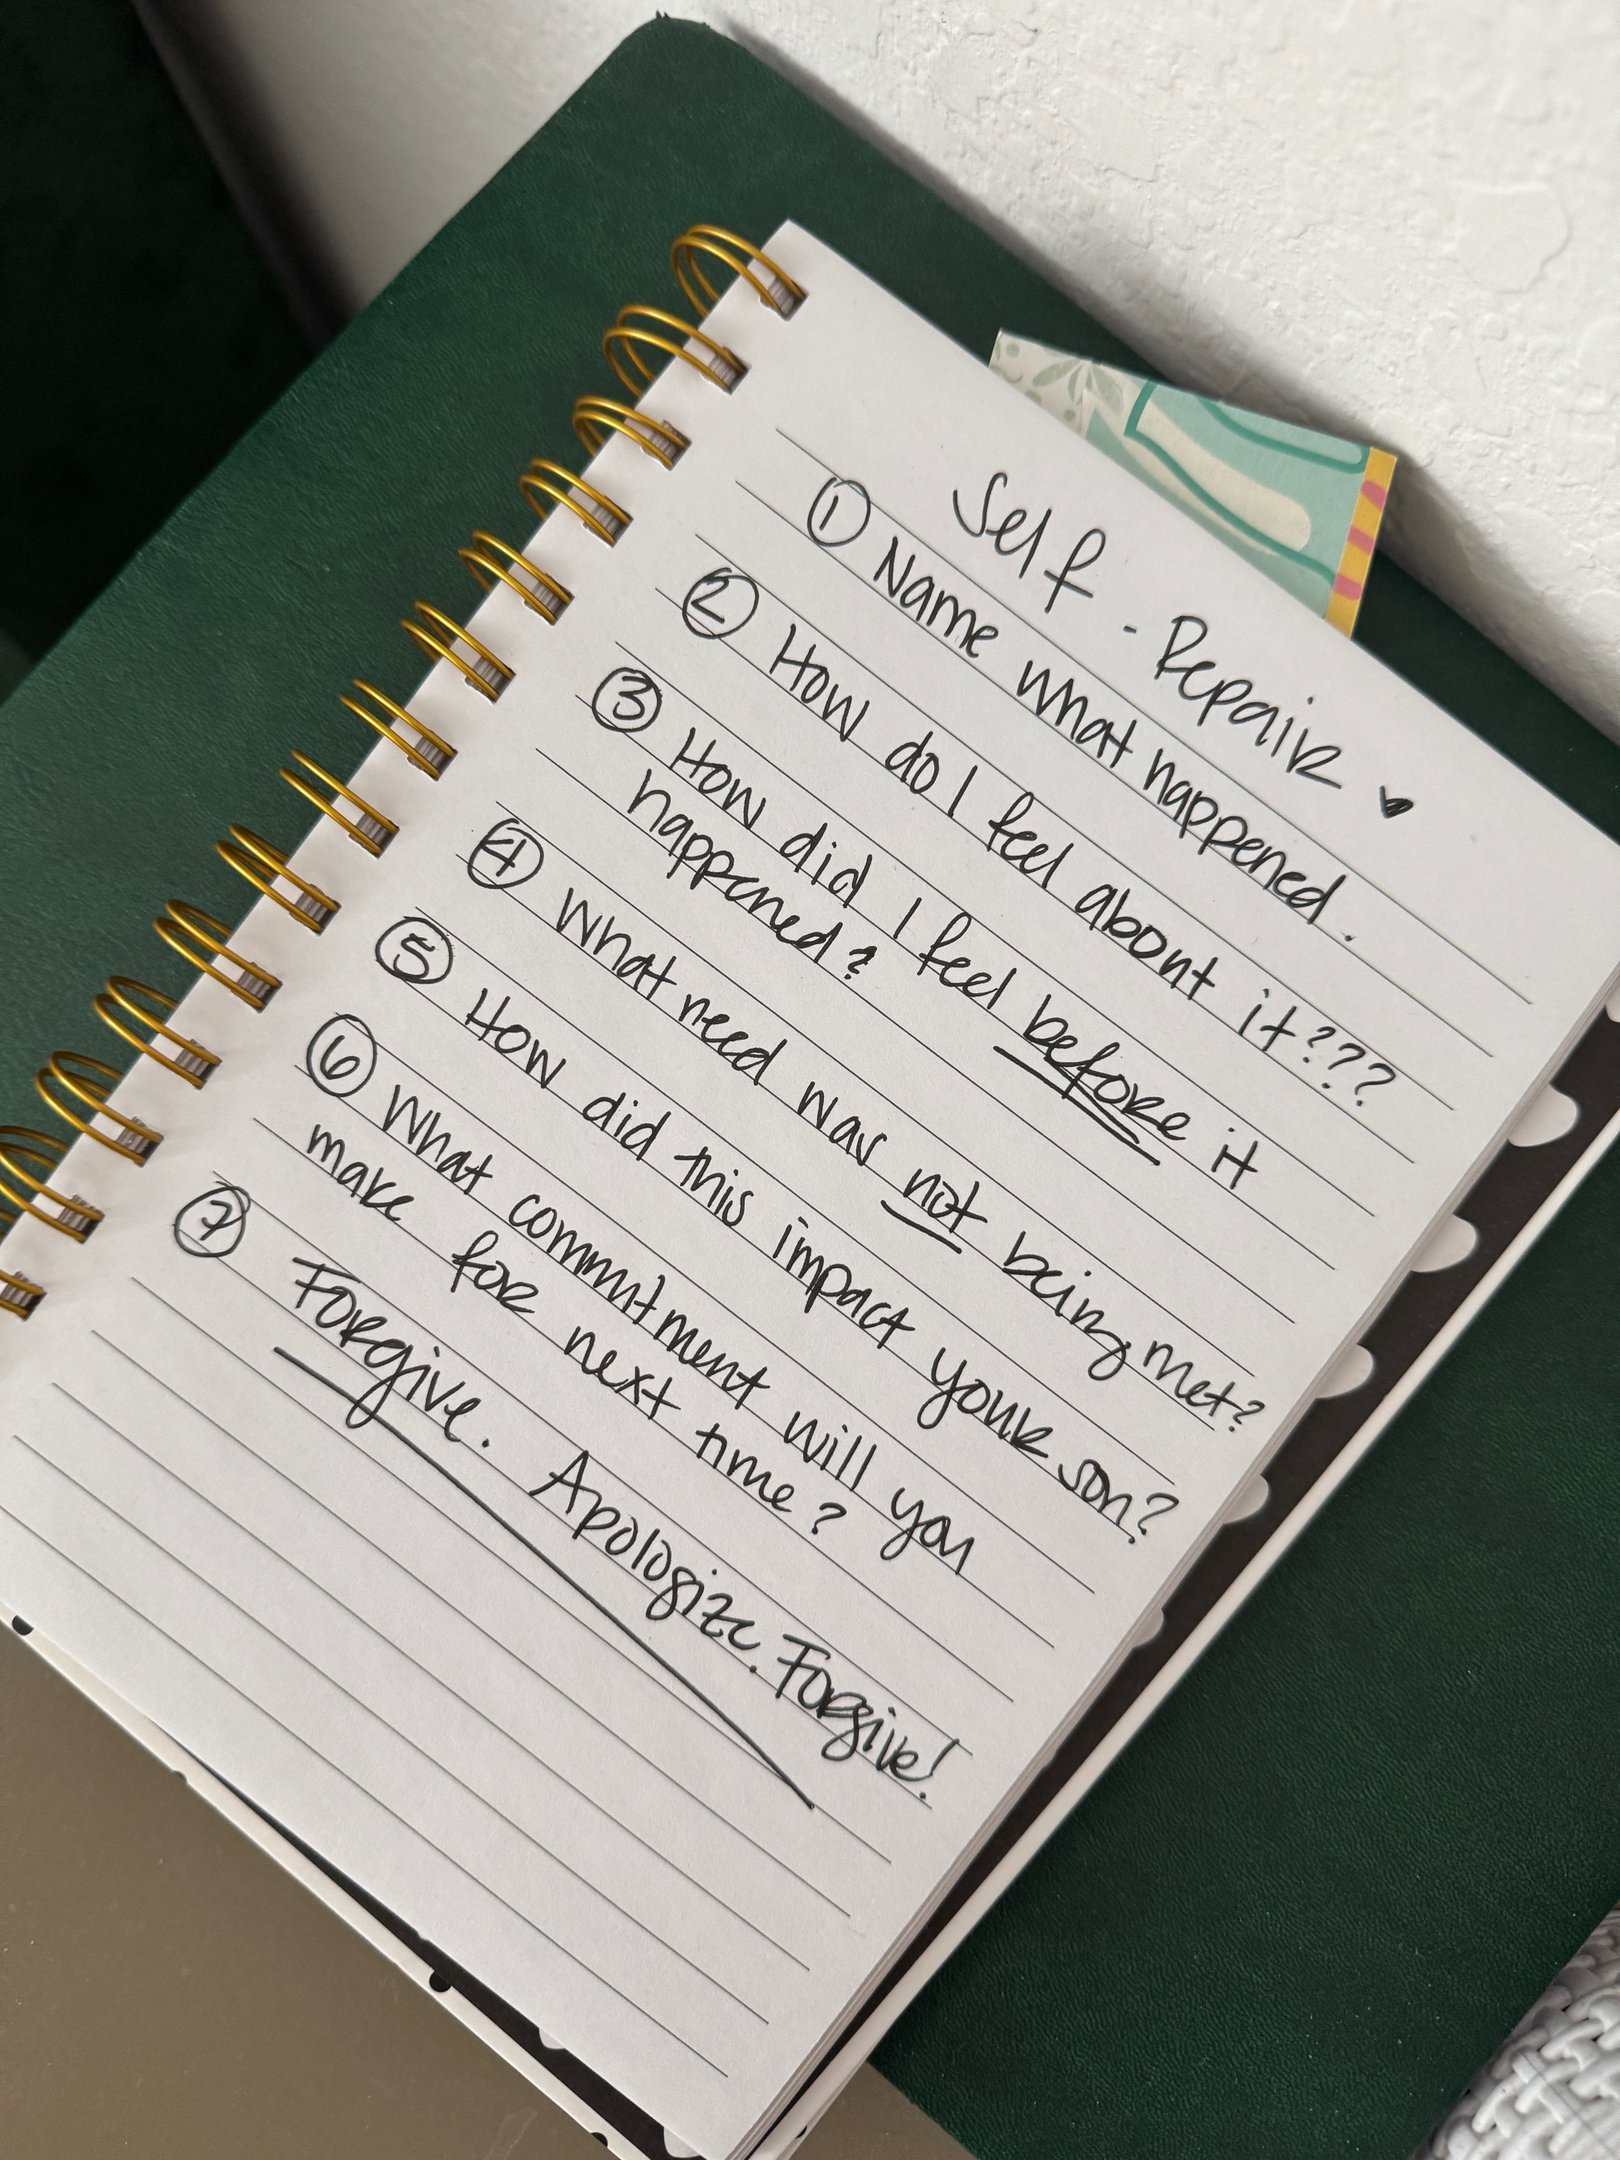 Self-Repair ♥
① Name what happened.
② How do I feel about it???
③ How did I feel before it
happened?
④ What need was not being met?
⑤ How did this impact your son?
⑥ What commitment will you
make for next time?
⑦ Forgive. Apologize. Forgive!